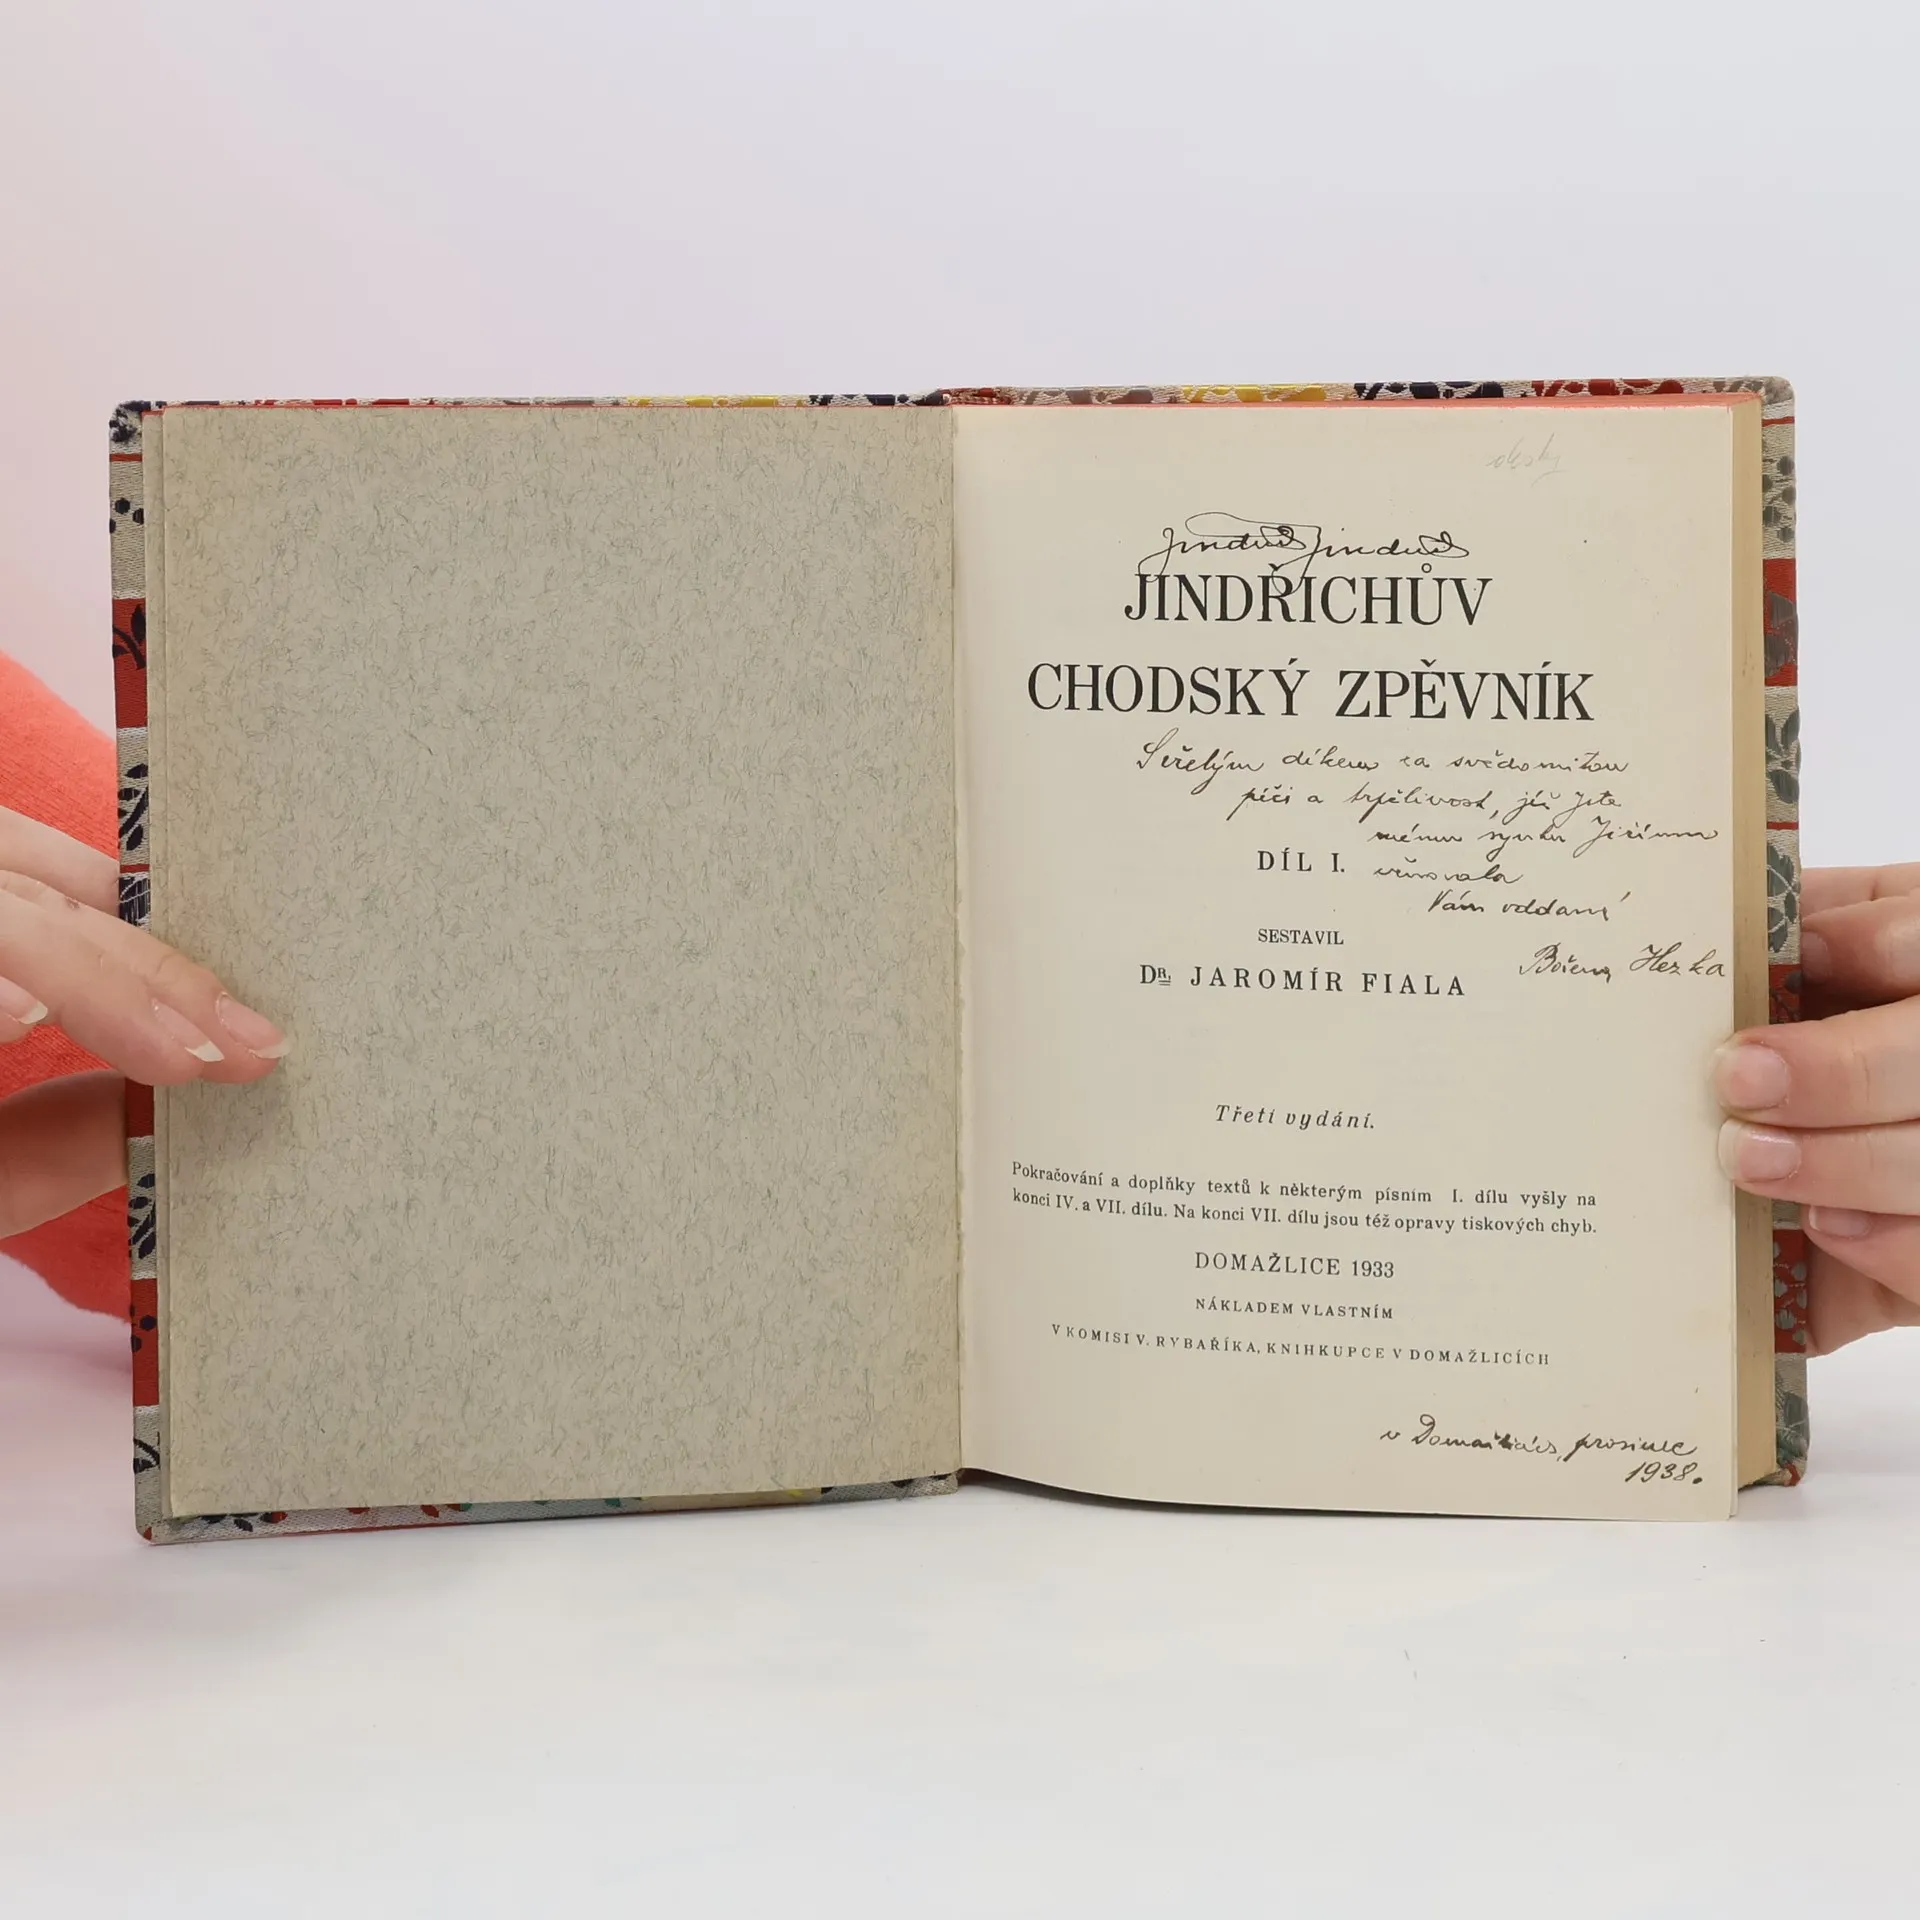 Jindřich Jindřich
JINDŘICHŮV
CHODSKÝ ZPĚVNÍK
díkem za svědomitou
péči a trpělivost, již jste
mému synku Jiřímu
DÍL I. věnovala
Vám oddaný
SESTAVIL
Hezka
DR. JAROMÍR FIALA
Třetí vydání.
Pokračování a doplňky textů k některým písním I. dílu vyšly na
konci IV. a VII. dílu. Na konci VII. dílu jsou též opravy tiskových chyb.
DOMAŽLICE 1933
NÁKLADEM VLASTNÍM
V KOMISI V. RYBAŘÍKA, KNIHKUPCE V DOMAŽLICÍCH
v Domažlicích, prosinec
1938.